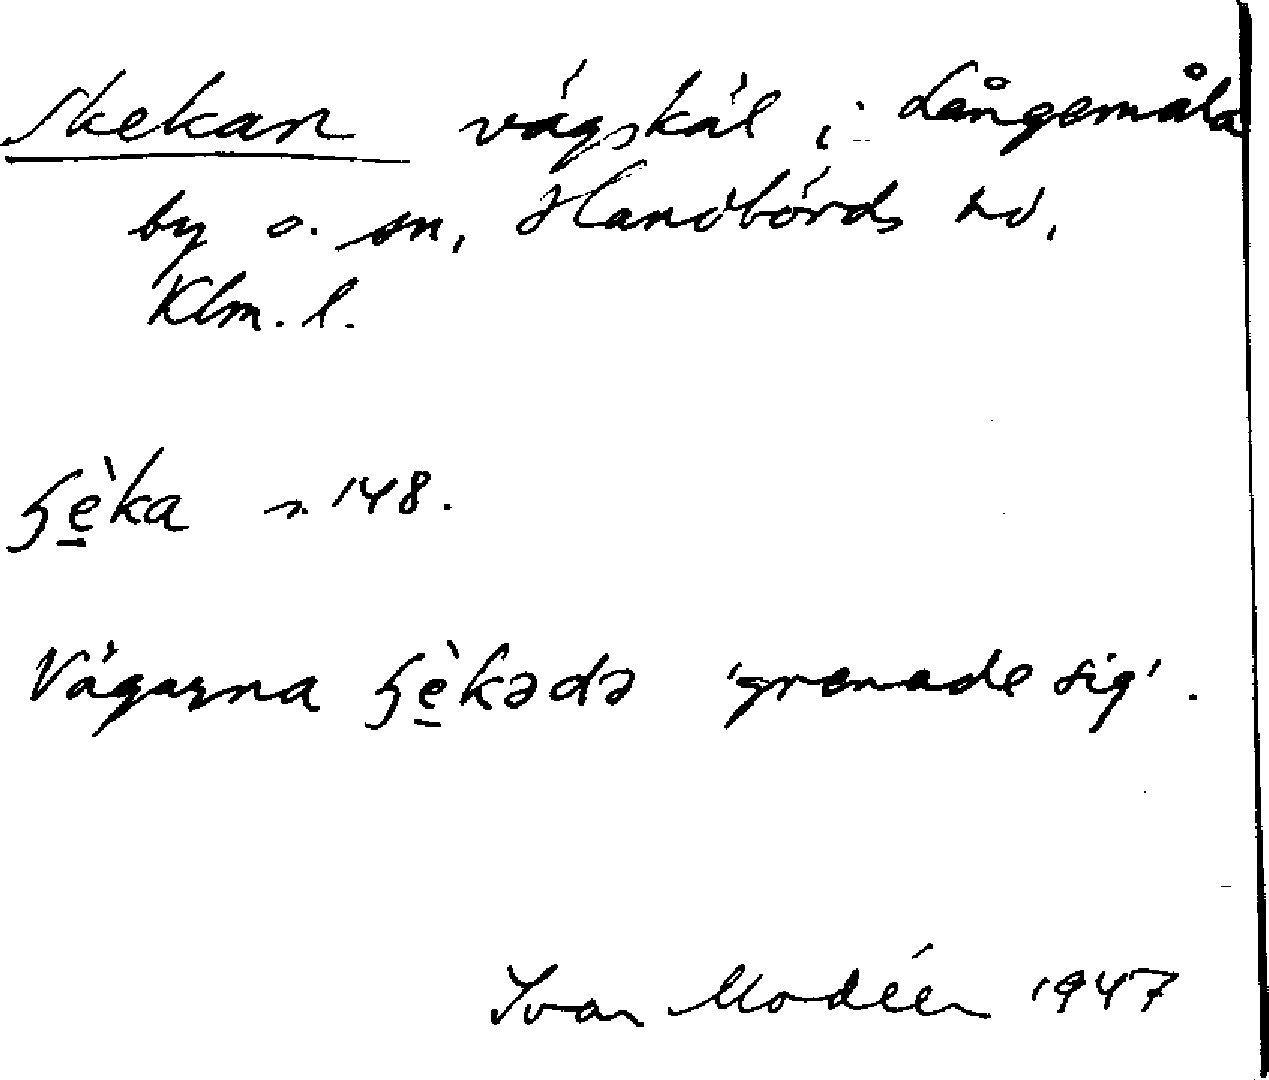 Skekan vägskäl i Långemåla
by o. sn, Handbörds hd,
Klm. l.
ʂè̱ka s. 148.
Vägarna ʂè̱kədə 'grenade sig'.
Ivar Modéer 1947